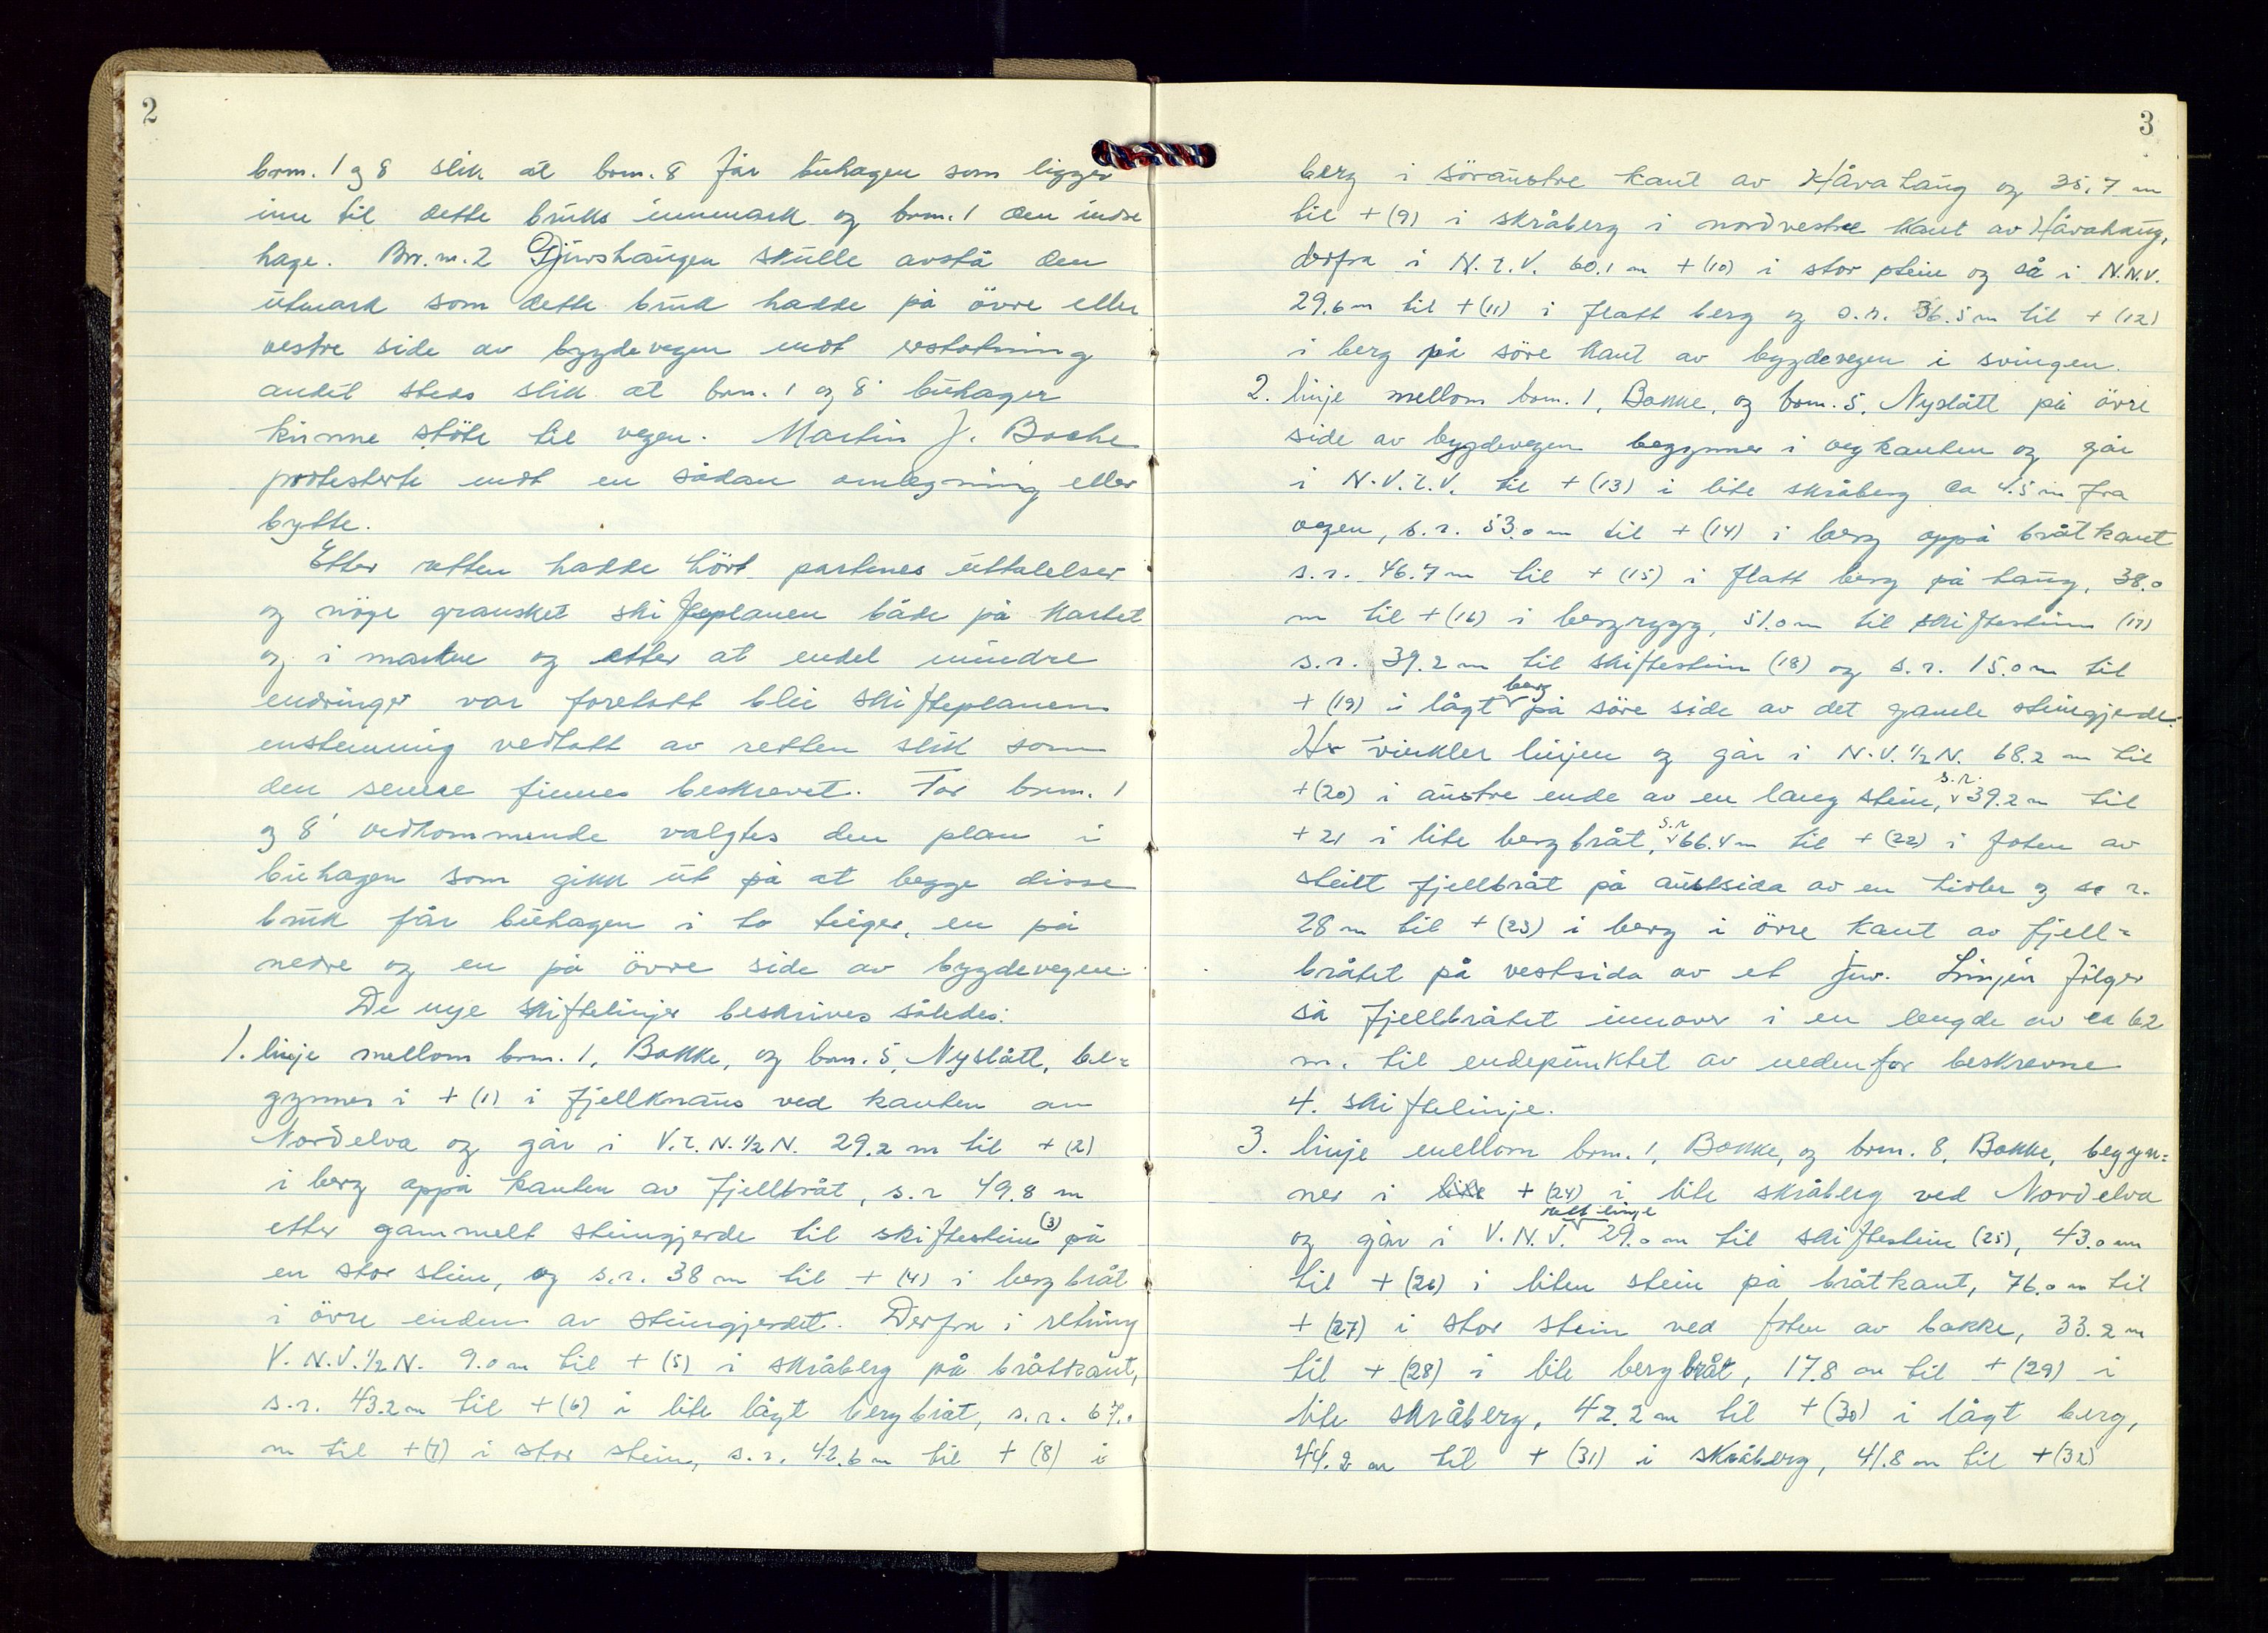 2
brm. 1 og 8 slik at brm. 8 får buhagen som ligger
inn til dette bruks innmark og brm. 1 den indre
hage. Br.n. 2 Djuvshaugen skulle avstå den
utmark som dette bruk hadde på övre eller
vestre side av bygdevegen mot erstatning
andet steds slik at brm. 1 og 8 buhager
kunne stöte til vegen. Martin J. Bache
protesterte mot en sådan omlegning eller
bytte.
Etter retten hadde hört partenes uttalelser
og nöye gransket skifteplanen både på kartet
og i marken og etter at endel mindre
endringer var foretatt blei skifteplanen
enstemmig vedtatt av retten slik som
den senere finnes beskrevet. For brm. 1
og 8 vedkommende valgtes den plan i
buhagen som gikk ut på at begge disse
bruk får buhagen i to teiger, en på
nedre og en på övre side av bygdevegen.
De nye skiftelinjer beskrives således:
1. linje mellom brm. 1, Bakke, og brm. 5, Nyslått, be=
gynner i + (1) i fjellknaus ved kanten av
Nordelva og går i V.t.N.½N. 29.2 m til + (2)
i berg oppå kanten av fjellbråt, s.r 49.8 m
etter gammelt steingjerde til skiftestein (3) på
en stor stein, og s.r. 38 m til + (4) i bergbråt
i övre enden av steingjerdet. Derfra i retning
V.N.V.½N. 9.0 m til + (5) i skråberg på bråtkant,
s.r. 43.2 m til + (6) i lite lågt bergbråt, s.r. 67.0
m til + (7) i stor stein, s.r. 42.6 m til + (8) i
3
berg i söraustre kant av Håvahaug og 35.7 m
til + (9) i skråberg i nordvestre kant av Håvahaug,
derfra i N.t.V. 60.1 m + (10) i stor stein og så i N.N.V.
29.6 m til + (11) i flatt berg og s.r. 36.5 m til + (12)
i berg på söre kant av bygdevegen i svingen.
2. linje mellom brm. 1, Bakke, og brm. 5, Nyslått på övre
side av bygdevegen begynner i vegkanten og går
i N.V.t.V. til + (13) i lite skråberg ca 4.5 m fra
vegen, s.r. 53.0 m til + (14) i berg oppå bråtkant
s.r. 46.7 m til + (15) i flatt berg på haug, 38.0
m til + (16) i bergrygg, 51.0 m til skiftestein (17)
s.r. 39.2 m til skiftestein (18) og s.r. 15.0 m til
+ (19) i lågt berg på söre side av det gamle steingjerde.
Her vinkler linjen og går i N.V.½N. 68.2 m til
+ (20) i austre ende av en lang stein, s.r. 39.2 m til
+ 21 i lite bergbråt, s.r 66.4 m til + (22) i foten av
steilt fjellbråt på austsida av en og s. r.
28 m til + (23) i berg i övre kant av fjell=
bråtet på vestsida av et juv. Linjen fölger
så fjellbråtet innover i en lengde av ca 62
m. til endepunktet av nedenfor beskrevne
4. skiftelinje.
3. linje mellom brm. 1, Bakke, og brm. 8, Bakke, begyn=
ner i lite + (24) i lite skråberg ved Nordelva
og går i V.N.V. rett linje 29.0 m til skiftestein (25), 43.0 m
til + (26) i liten stein på bråtkant, 76.0 m til
+ (27) i stor stein ved foten av bakke, 33.2 m
til + (28) i lite bergbråt, 17.8 m til + (29) i
lite skråberg, 42.2 m til + (30) i lågt berg,
44.2 m til + (31) i skråberg, 41.8 m til + (32)